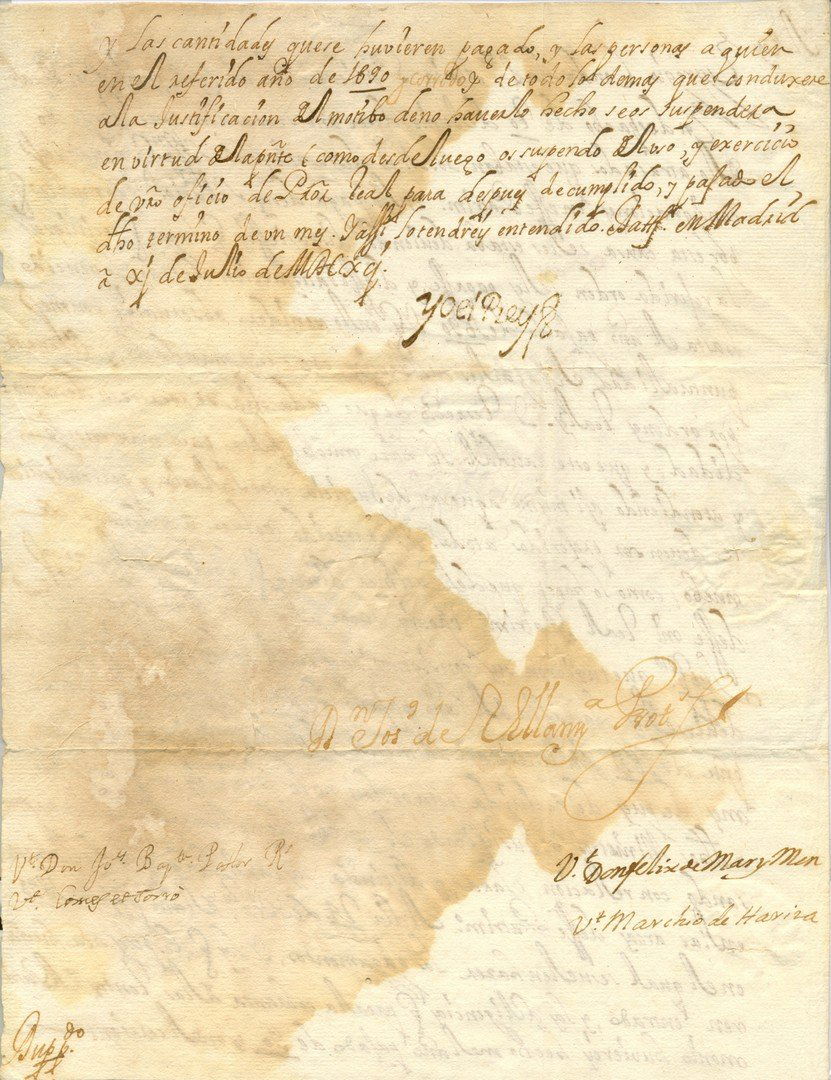 y las cantidades que se huvieren pagado, y las personas a quien
en el referido año de 1690 y de todo lo demas que conduxere
a la Justificacion del motibo de no haverlo hecho se os suspendera
en virtud de la pnte (como desde luego os suspendo del uso, y exercicio
de vro oficio de Real para despues de cumplido, y pasado el
dho termino de un mes. Y assi lo tendreys entendido. Datt. en Madrid
a xj de Julio de MDCxCj.
Yo el Rey
Dn Joso de Villanua Prots
Vt Don Jo. Bapta Pastor Rs
Vt Comes et Torró
Vt Don felix de Mary Mon
Vt Marchio de Hariza
Dupp.do